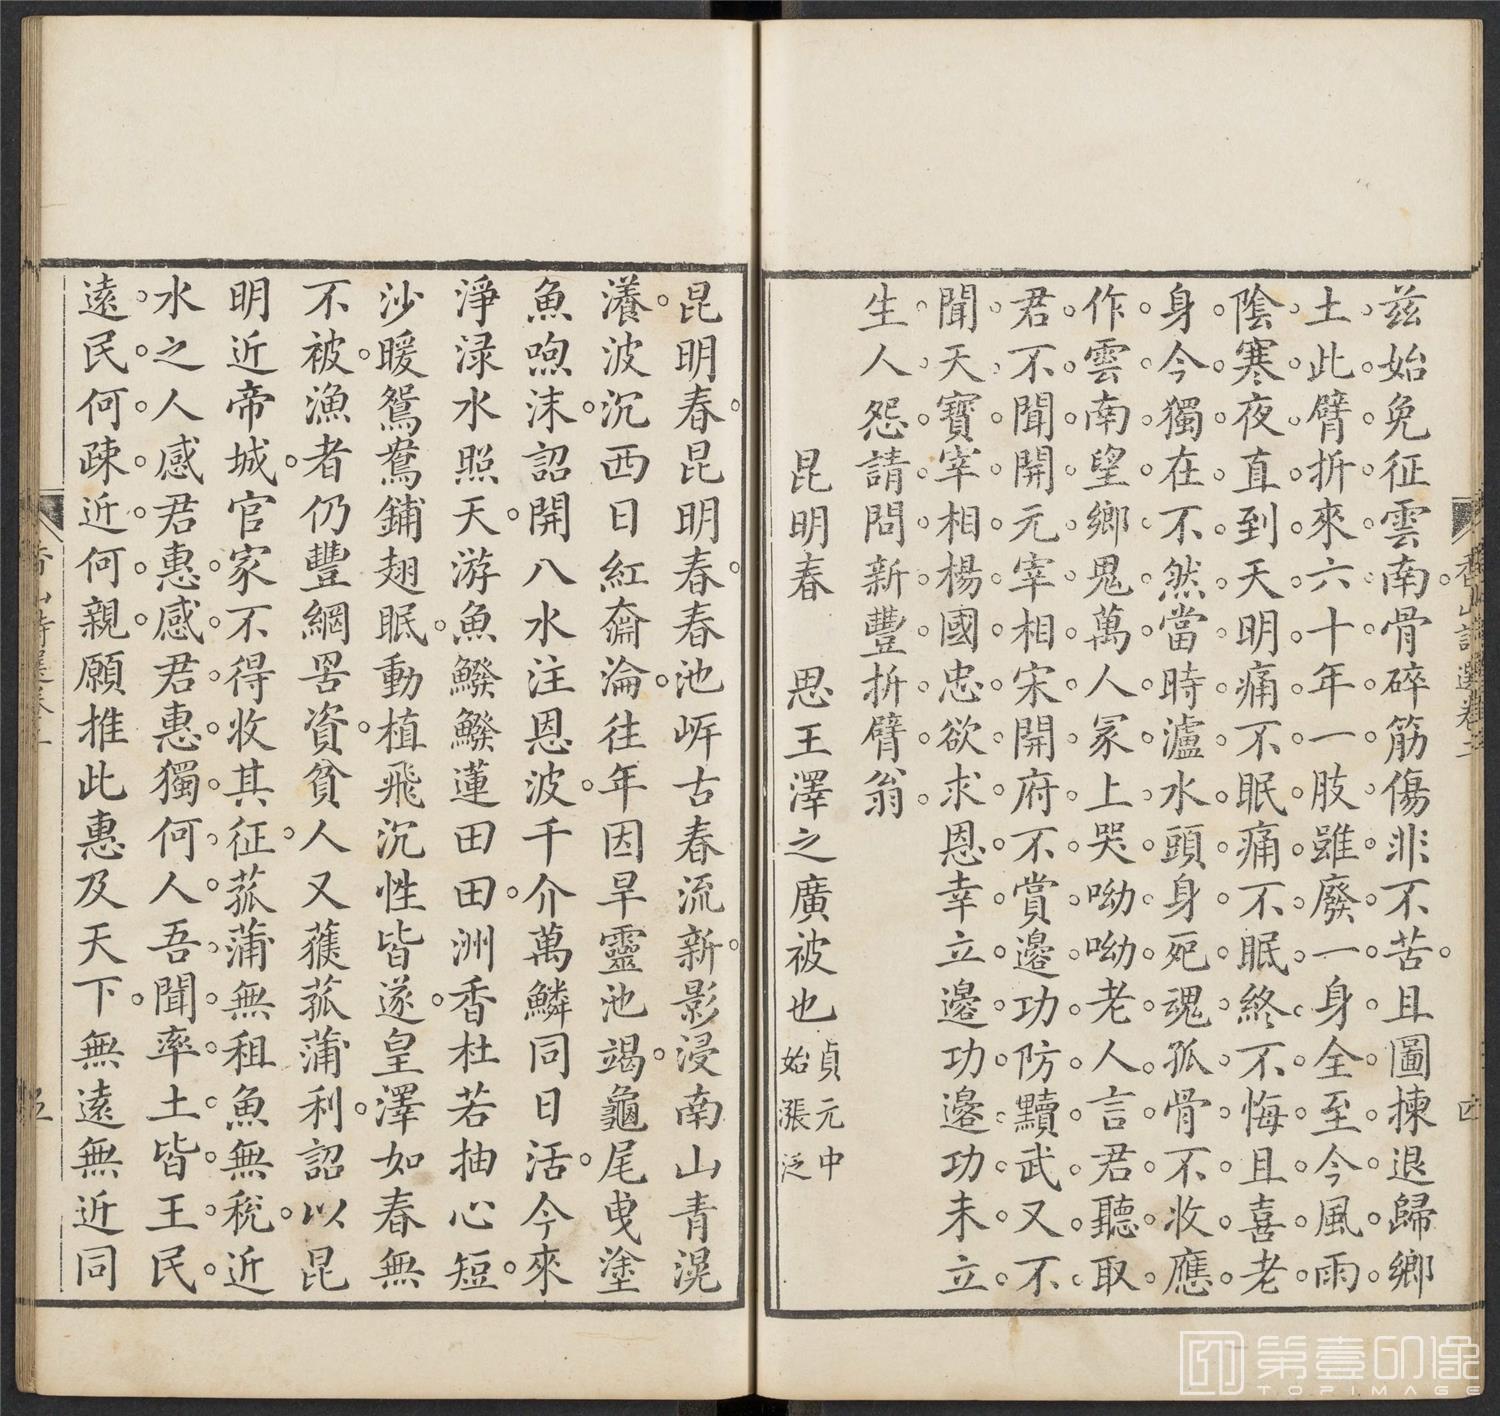 茲始免征雲南骨碎筋傷非不苦且圖揀退歸鄉
土此臂折來六十年一肢雖廢一身全至今風雨
陰寒夜直到天明痛不眠痛不眠終不悔且喜老
身今獨在不然當時瀘水頭身死魂孤骨不收應
作雲南望鄉鬼萬人冢上哭呦呦老人言君聽取
君不聞開元宰相宋開府不賞邊功防黷武又不
聞天寶宰相楊國忠欲求恩幸立邊功邊功未立
生人怨請問新豐折臂翁
昆明春 思王澤之廣被也貞元中
始漲泛
昆明春昆明春春池岸古春流新影浸南山青滉
瀁波沉西日紅奫淪往年因旱靈池竭龜尾曳塗
魚喣沫詔開八水注恩波千介萬鱗同日活今來
淨淥水照天游魚鱍鱍蓮田田洲香杜若抽心短
沙暖鴛鴦鋪翅眠動植飛沉性皆遂皇澤如春無
不被漁者仍豐網罟資貧人又獲菰蒲利詔以昆
明近帝城官家不得收其征菰蒲無租魚無稅近
水之人感君惠感君惠獨何人吾聞率土皆王民
遠民何疎近何親願推此惠及天下無遠無近同
第壹印像
TOPIMAGE